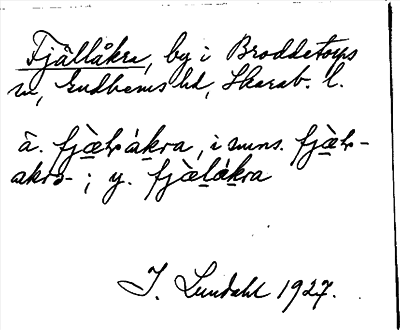 Fjällåkra, by i Broddetorps
sn, Gudhems hd, Skarab. l.
ä. fjæ̀lråkra, i smns. fjæ̀lr-
akra- ; y. fjæ̀låkra
I. Lundahl 1927.